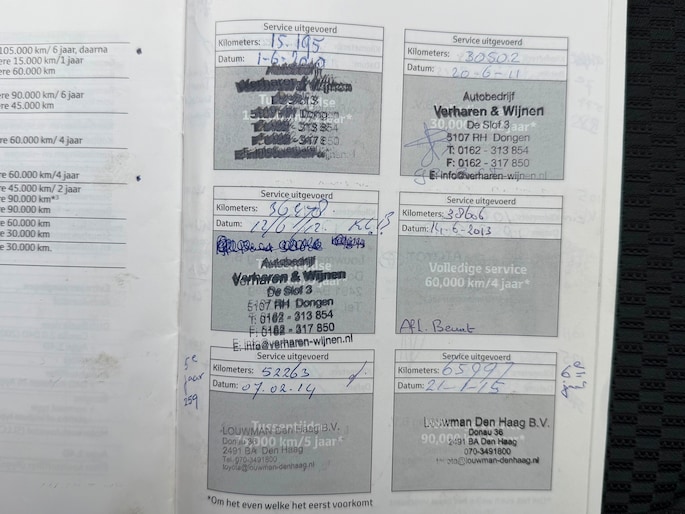 105.000 km/ 6 jaar, daarna
ere 15.000 km/1 jaar
ere 60.000 km
ere 90.000 km/ 6 jaar
ere 45.000 km
re 60.000 km/ 4 jaar
re 60.000 km/4 jaar
re 45.000 km/ 2 jaar
re 90.000 km*³
re 90.000 km
re 60.000 km
re 30.000 km
e 30.000 km.
Service uitgevoerd
Kilometers: 15.195
Datum: 1-6-
Verharen & Wijnen
5107 RH Dongen
Service uitgevoerd
Kilometers: 30502
Datum: 20-6-11
Autobedrijf
Verharen & Wijnen
De Slof 3
5107 RH Dongen
T: 0162 - 313 854
F: 0162 - 317 850
E: info@verharen-wijnen.nl
Service uitgevoerd
Kilometers:
Datum: 12/6/12.
Autobedrijf
Verharen & Wijnen
De Slof 3
5107 RH Dongen
T: 0162 - 313 854
F: 0162 - 317 850
E: info@verharen-wijnen.nl
Service uitgevoerd
Kilometers: 38606
Datum: 14-6-2013
Volledige service
60,000 km/4 jaar*
Service uitgevoerd
Kilometers: 52263
Datum: 07.02.14
5e
jaar
Tussentijdse
LOUWMAN Den Haag B.V.
000 km/5 jaar*
2491 BA Den Haag
Tel. 070-3491800
toyota@louwman-denhaag.nl
Service uitgevoerd
Kilometers: 65997
Datum: 21-1-15
Louwman Den Haag B.V.
Donau 36
90,000
2491 BA Den Haag
070-3491800
toyota@louwman-denhaag.nl
*Om het even welke het eerst voorkomt